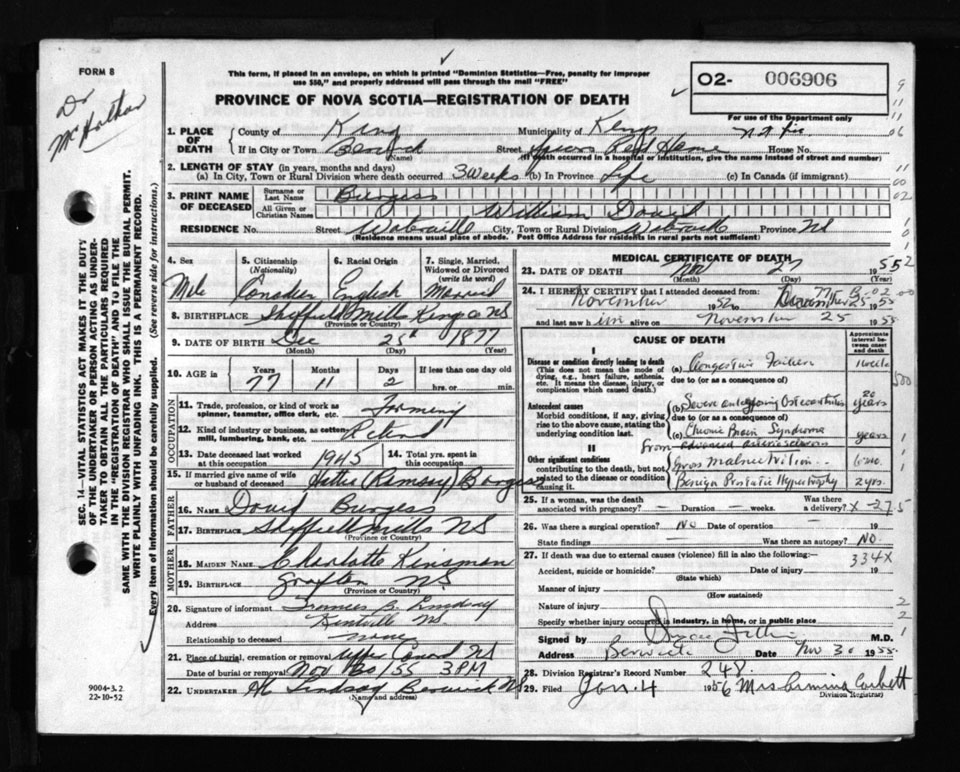 FORM 8
This form, if placed in an envelope, on which is printed "Dominion Statistics—Free, penalty for improper
use $50," and properly addressed will pass through the mail "FREE"
O2- 006906
Dr
PROVINCE OF NOVA SCOTIA—REGISTRATION OF DEATH
For use of the Department only
1. PLACE OF DEATH
County of Kings Municipality of Kings
If in City or Town Berwick Street Rest Home House No.
(Name) (If death occurred in a hospital or institution, give the name instead of street and number)
2. LENGTH OF STAY (in years, months and days)
(a) In City, Town or Rural Division where death occurred 3 weeks (b) In Province Life (c) In Canada (if immigrant)
3. PRINT NAME OF DECEASED
Surname or Last Name Burgess
All Given or Christian Names William David
RESIDENCE No. Street Waterville City, Town or Rural Division Waterville Province NS
(Residence means usual place of abode. Post Office Address for residents in rural parts not sufficient)
4. Sex Male
5. Citizenship (Nationality) Canadian
6. Racial Origin English
7. Single, Married, Widowed or Divorced (write the word) Married
8. BIRTHPLACE Sheffield Mills Kings Co NS
(Province or Country)
9. DATE OF BIRTH Dec 25th 1877
(Month) (Day) (Year)
10. AGE in Years 77 Months 11 Days 2 If less than one day old
hrs. or min.
OCCUPATION
11. Trade, profession, or kind of work as spinner, teamster, office clerk, etc. Farming
12. Kind of industry or business, as cotten-mill, lumbering, bank, etc. Retired
13. Date deceased last worked at this occupation 1945 14. Total yrs. spent in this occupation
15. If married give name of wife or husband of deceased Hattie (Ramsay) Burgess
FATHER
16. Name David Burgess
17. Birthplace Sheffield Mills NS
(Province or Country)
MOTHER
18. Maiden Name Charlotte Kinsman
19. Birthplace Grafton NS
(Province or Country)
20. Signature of informant Frances B. Lindsay
Address Kentville NS
Relationship to deceased none
21. Place of burial, cremation or removal Upper Canard NS
Date of burial or removal Nov 30/55 3 PM
22. UNDERTAKER Lindsay Berwick NS
(Name and address)
9004-3.2
22-10-52
SEC. 14—VITAL STATISTICS ACT MAKES IT THE DUTY
OF THE UNDERTAKER OR PERSON ACTING AS UNDER-
TAKER TO OBTAIN ALL THE PARTICULARS REQUIRED
IN THE "REGISTRATION OF DEATH" AND TO FILE THE
SAME WITH THE DIVISION REGISTRAR WHO SHALL ISSUE THE BURIAL PERMIT.
WRITE PLAINLY WITH UNFADING INK. THIS IS A PERMANENT RECORD.
Every item of information should be carefully supplied. (See reverse side for instructions.)
MEDICAL CERTIFICATE OF DEATH
23. DATE OF DEATH Nov 27 1955
(Month) (Day) (Year)
24. I HEREBY CERTIFY that I attended deceased from:
November 1952 to November 25 1955
and last saw him alive on November 25 1955
CAUSE OF DEATH
Approximate interval between onset and death
I
Disease or condition directly leading to death
(This does not mean the mode of dying, e.g., heart failure, asthenia, etc. It means the disease, injury, or complication which caused death.)
(a) Congestive Failure 1 week
due to (or as a consequence of)
Antecedent causes
Morbid conditions, if any, giving rise to the above cause, stating the underlying condition last.
(b) Severe Osteoarthritis 20 years
due to (or as a consequence of)
(c) Chronic Brain Syndrome years
from advanced arteriosclerosis
II
Other significant conditions
contributing to the death, but not related to the disease or condition causing it.
Gross Malnutrition 6 mo.
Benign Prostatic Hypertrophy 2 yrs.
25. If a woman, was the death associated with pregnancy? — Duration — weeks. Was there a delivery?
26. Was there a surgical operation? No Date of operation — 19
State findings — Was there an autopsy? NO
27. If death was due to external causes (violence) fill in also the following:—
334X
Accident, suicide or homicide? Date of injury 19
(State which)
Manner of injury
(How sustained)
Nature of injury
Specify whether injury occurred in industry, in home, or in public place
Signed by M.D.
Address Berwick Date Nov 30 1955
28. Division Registrar's Record Number 248.
29. Filed Jan. 4 1956 Mrs Corbett
Division Registrar